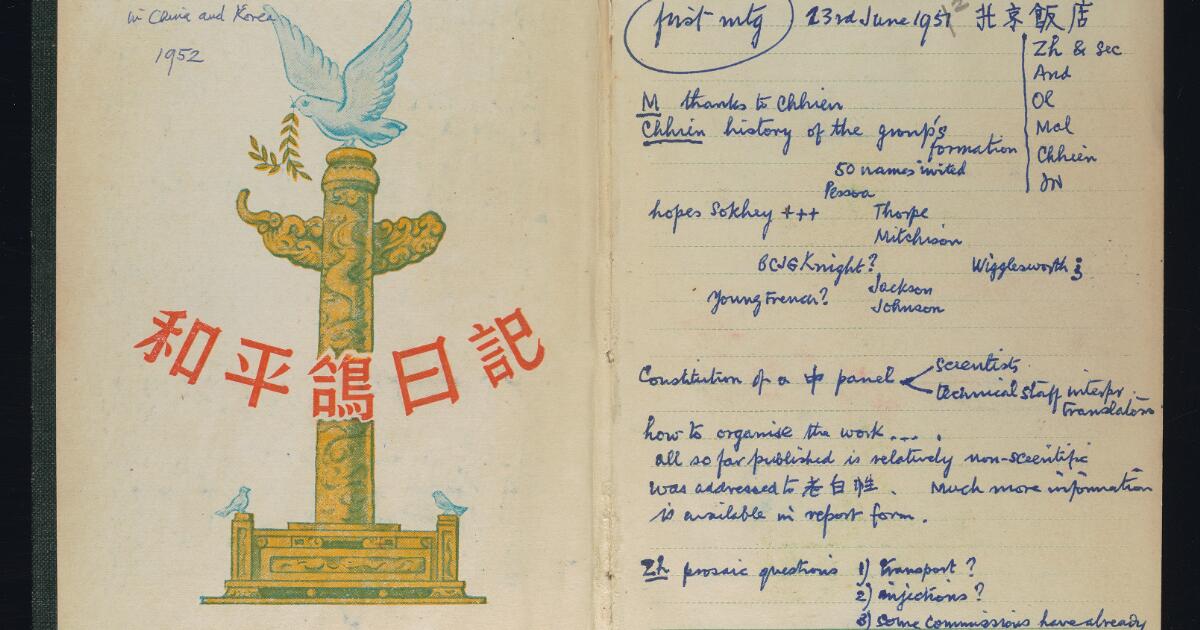 in China and Korea
1952
和平鴿日記
first mtg
23rd June 1951
12
北京飯店
Zh & Sec
And
Ol
Mal
Chhien
JN
M thanks to Chhien
Chhien history of the group's
formation
50 names invited
Pessoa
hopes Sokhey +++ Thorpe
Mitchison
BCJG Knight? Wigglesworth
Young French? Jackson
Johnson
Constitution of a 中 panel
scientists
technical staff interpr
translators
how to organise the work....
all so far published is relatively non-scientific
was addressed to 老白姓. Much more information
is available in report form.
Zh prosaic questions 1) transport?
2) injections?
3) some commissions have already